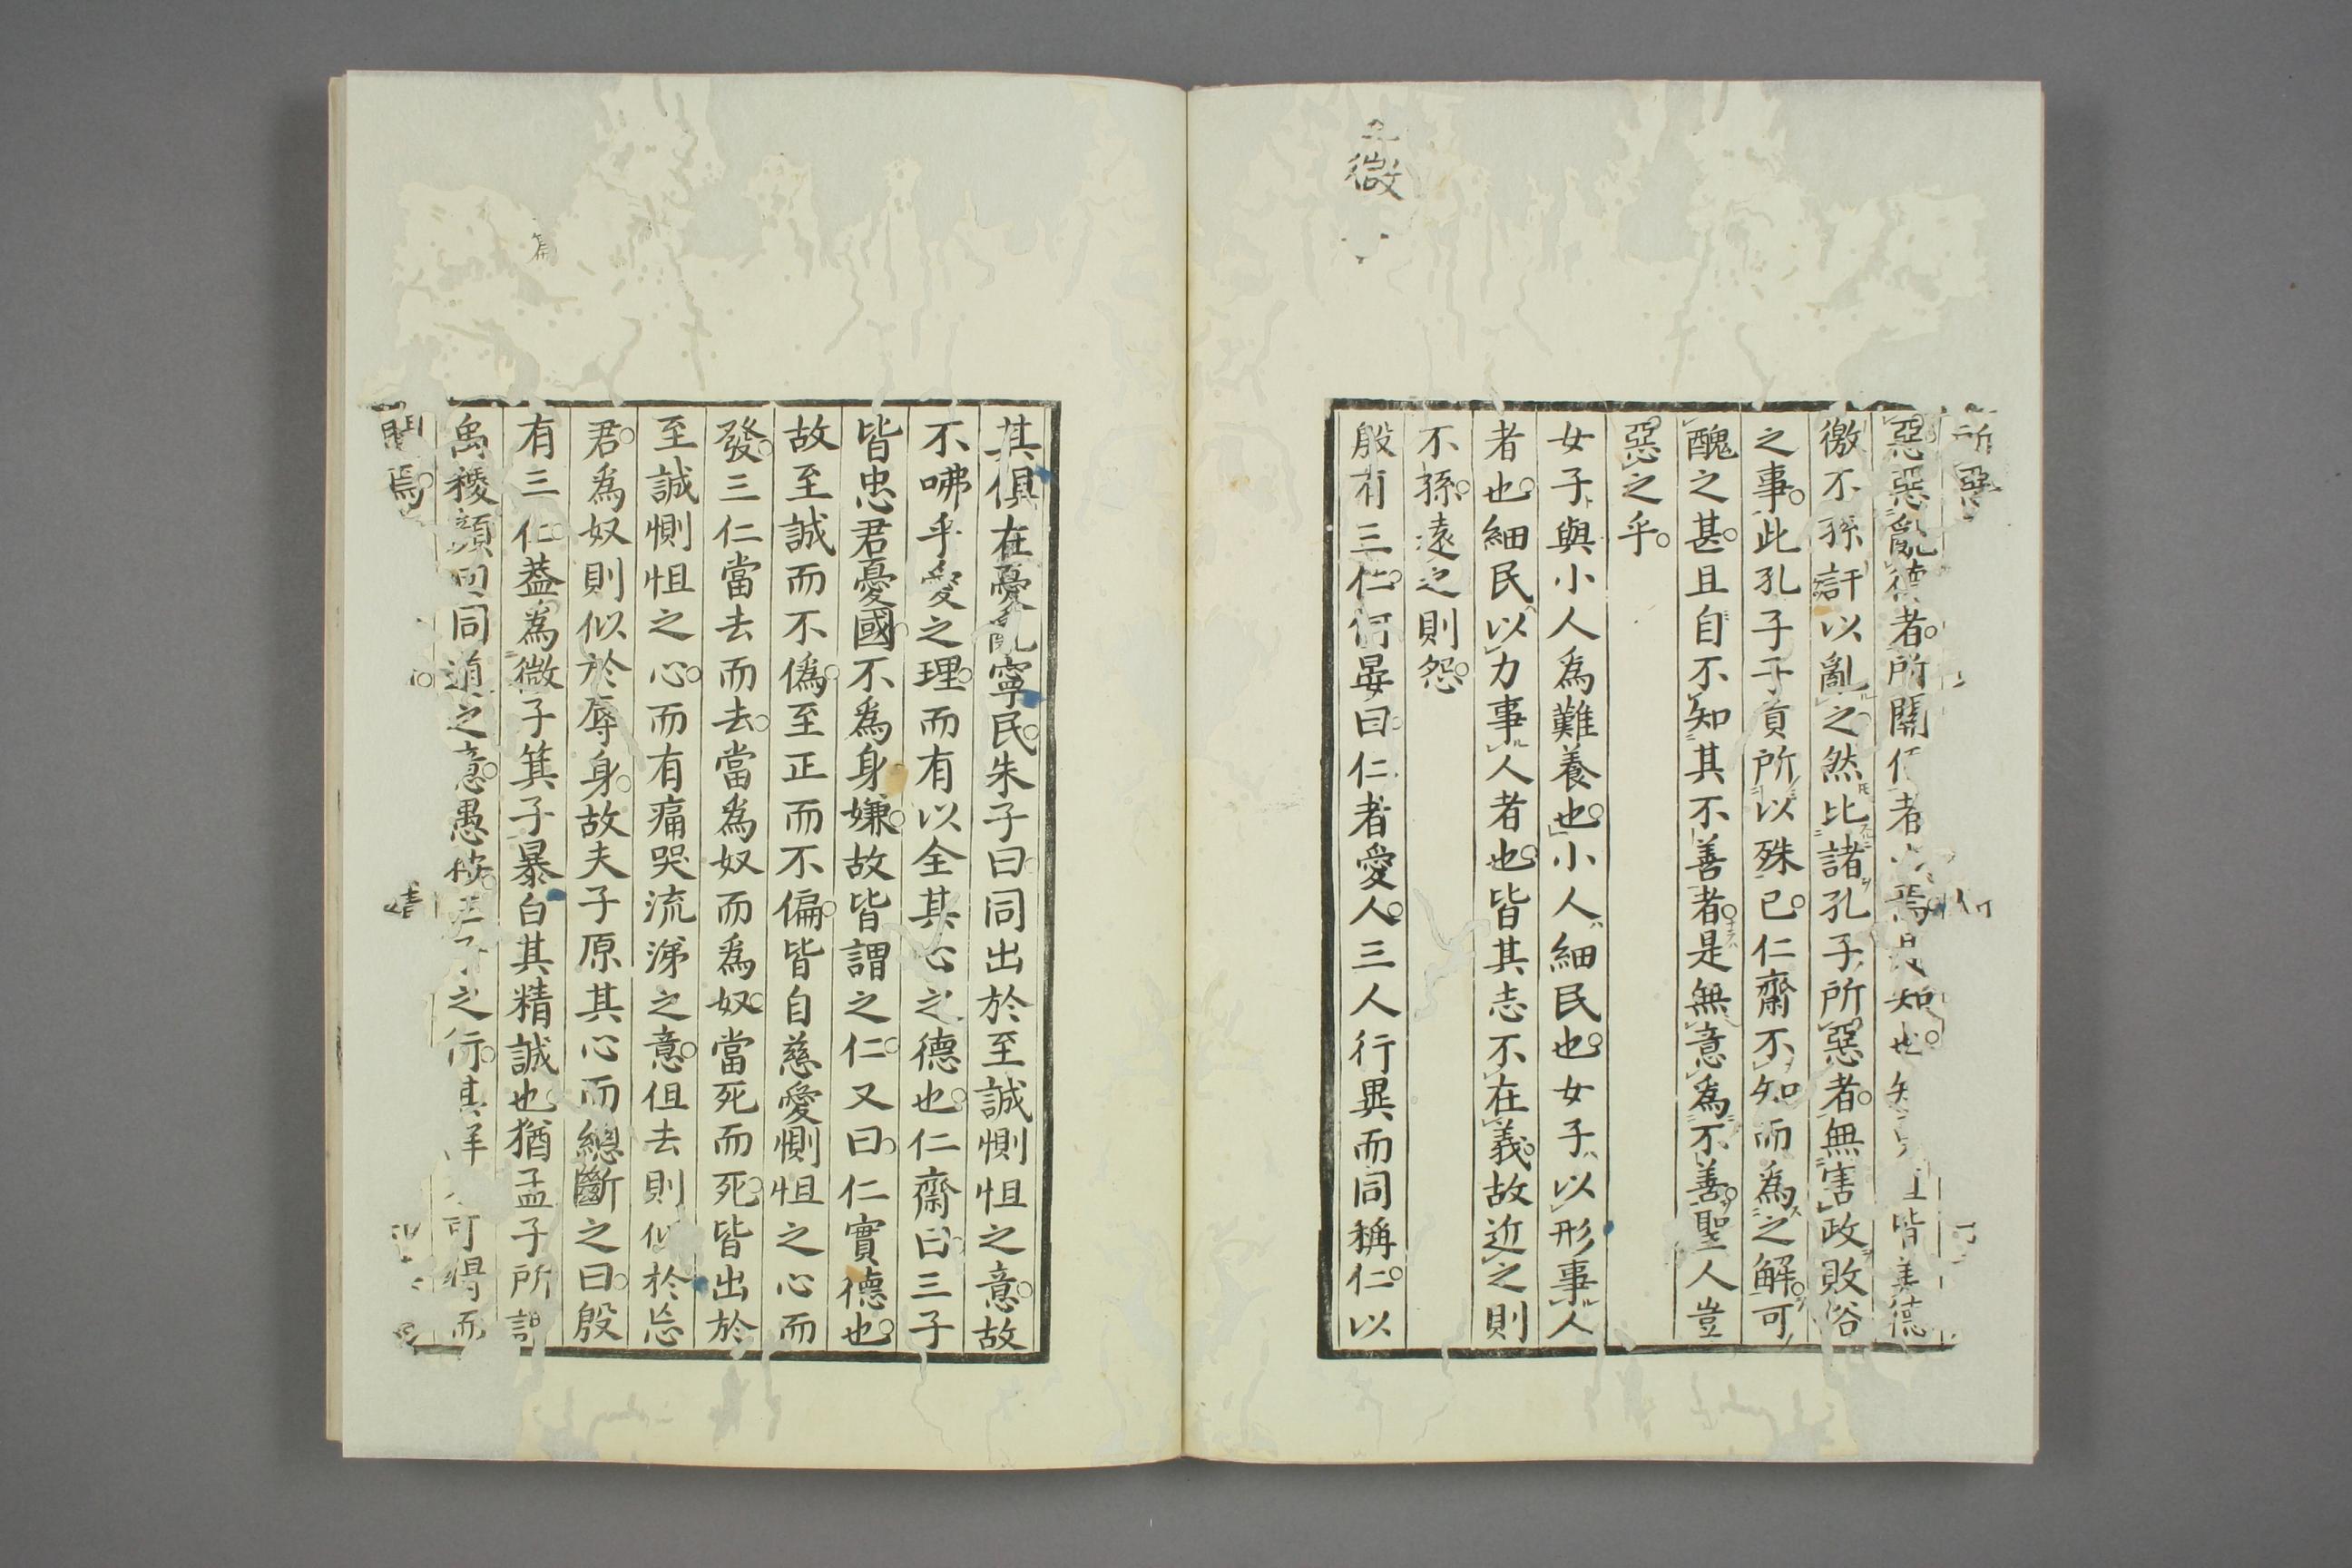 微
所惡
惡惡亂德者所關
者
焉
知也
皆美德
徼不孫訐以亂之然比諸孔子所惡者無害政敗俗
之事此孔子子貢所以殊已仁齋不知而為之解可
醜之甚且自不知其不善者是無意為不善聖人豈
惡之乎
女子與小人爲難養也小人細民也女子以形事人
者也細民以力事人者也皆其志不在義故近之則
不孫遠之則怨
殷有三仁何晏曰仁者愛人三人行異而同稱仁以
其俱在憂亂寧民朱子曰同出於至誠惻怛之意故
不咈乎愛之理而有以全其心之德也仁齋曰三子
皆忠君憂國不爲身嫌故皆謂之仁又曰仁實德也
故至誠而不僞至正而不偏皆自慈愛惻怛之心而
發三仁當去而去當爲奴而爲奴當死而死皆出於
至誠惻怛之心而有痛哭流涕之意但去則似於忘
君爲奴則似於辱身故夫子原其心而總斷之曰殷
有三仁葢爲微子箕子暴白其精誠也猶孟子所謂
禹稷顏回同道之意愚按
子之行其詳
可得而
聞焉